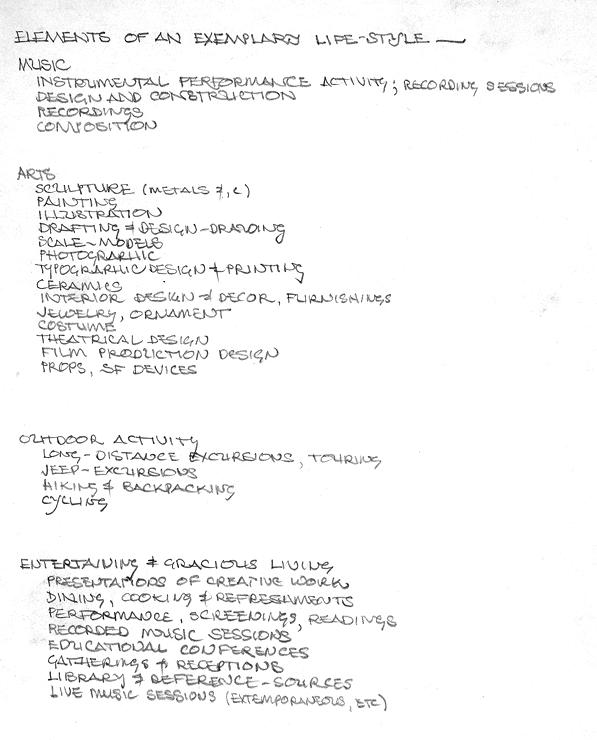 ELEMENTS OF AN EXEMPLARY LIFE-STYLE —
MUSIC
INSTRUMENTAL PERFORMANCE ACTIVITY; RECORDING SESSIONS
DESIGN AND CONSTRUCTION
RECORDINGS
COMPOSITION
ARTS
SCULPTURE (METALS &, C)
PAINTING
ILLUSTRATION
DRAFTING & DESIGN-DRAWING
SCALE-MODELS
PHOTOGRAPHIC
TYPOGRAPHIC DESIGN & PRINTING
CERAMICS
INTERIOR DESIGN & DECOR, FURNISHINGS
JEWELRY, ORNAMENT
COSTUME
THEATRICAL DESIGN
FILM PRODUCTION DESIGN
PROPS, SF DEVICES
OUTDOOR ACTIVITY
LONG-DISTANCE EXCURSIONS, TOURING
JEEP-EXCURSIONS
HIKING & BACKPACKING
CYCLING
ENTERTAINING & GRACIOUS LIVING
PRESENTATIONS OF CREATIVE WORK
DINING, COOKING & REFRESHMENTS
PERFORMANCE, SCREENINGS, READINGS
RECORDED MUSIC SESSIONS
EDUCATIONAL CONFERENCES
GATHERINGS & RECEPTIONS
LIBRARY & REFERENCE-SOURCES
LIVE MUSIC SESSIONS (EXTEMPORANEOUS, ETC)